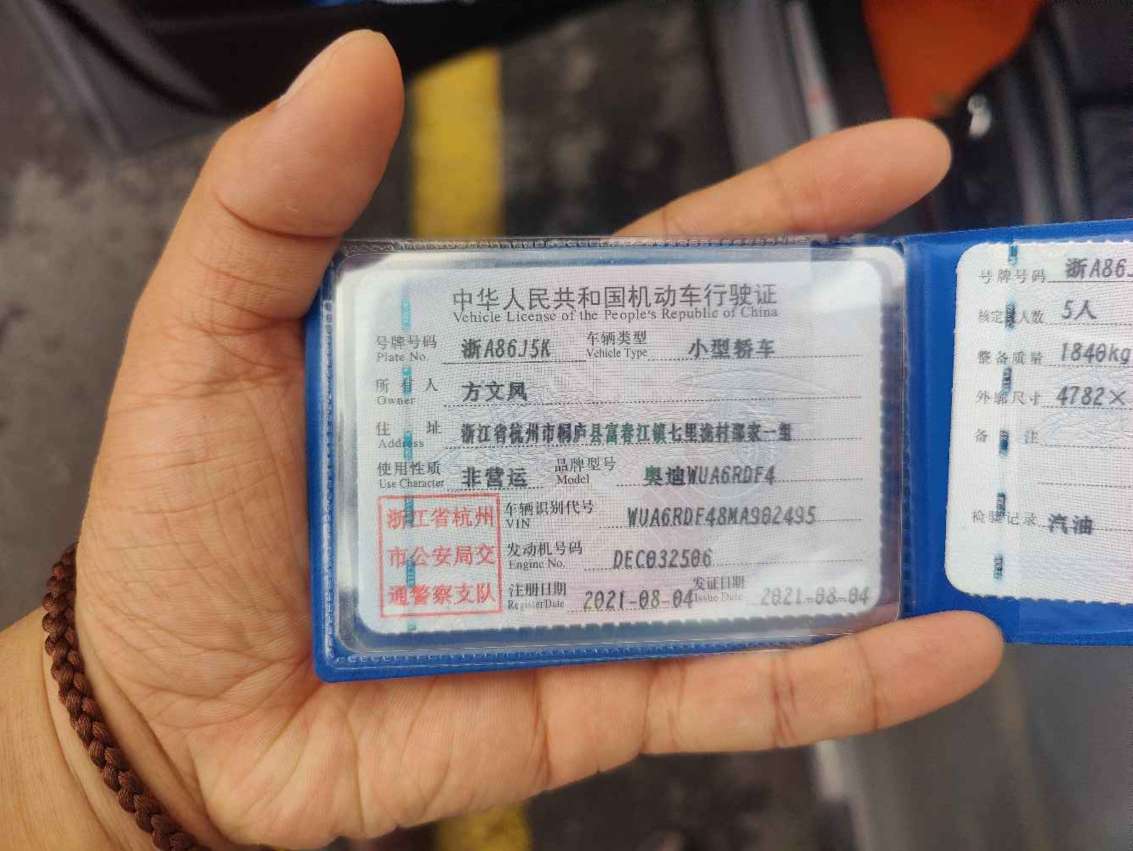 中华人民共和国机动车行驶证
Vehicle License of the People's Republic of China
号牌号码 浙A86J5K 车辆类型 小型轿车
Plate No. Vehicle Type
所有人 方文风
Owner
住址 浙江省杭州市桐庐县富春江镇七里泷村邵家一组
Address
使用性质 非营运 品牌型号 奥迪WUA6RDF4
Use Character Model
浙江省杭州
市公安局交
通警察支队
车辆识别代号 WUA6RDF48MA902495
VIN
发动机号码 DEC032506
Engine No.
注册日期 2021-08-04 发证日期 2021-08-04
Register Date Issue Date
号牌号码 浙A86J
核定 人数 5人
整备质量 1840kg
外廓尺寸 4782×
备注
检验记录 汽油